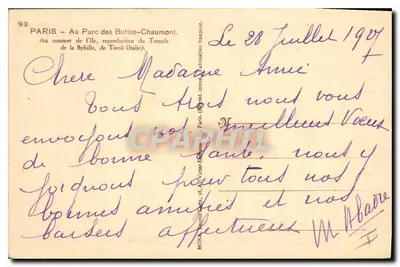 93
PARIS - Au Parc des Buttes-Chaumont.
Au sommet de l'Ile, reproduction du Temple
de la Sybille, de Tivoli (Italie).
Le 28 Juillet 1927
Chere Madame Annie
Tous trois nous vous
envoyons nos meilleurs Vœux
de bonne Santé, nous y
joignons pour tous nos
bonnes amitiés et nos
baisers affectueux
CPAPHIL